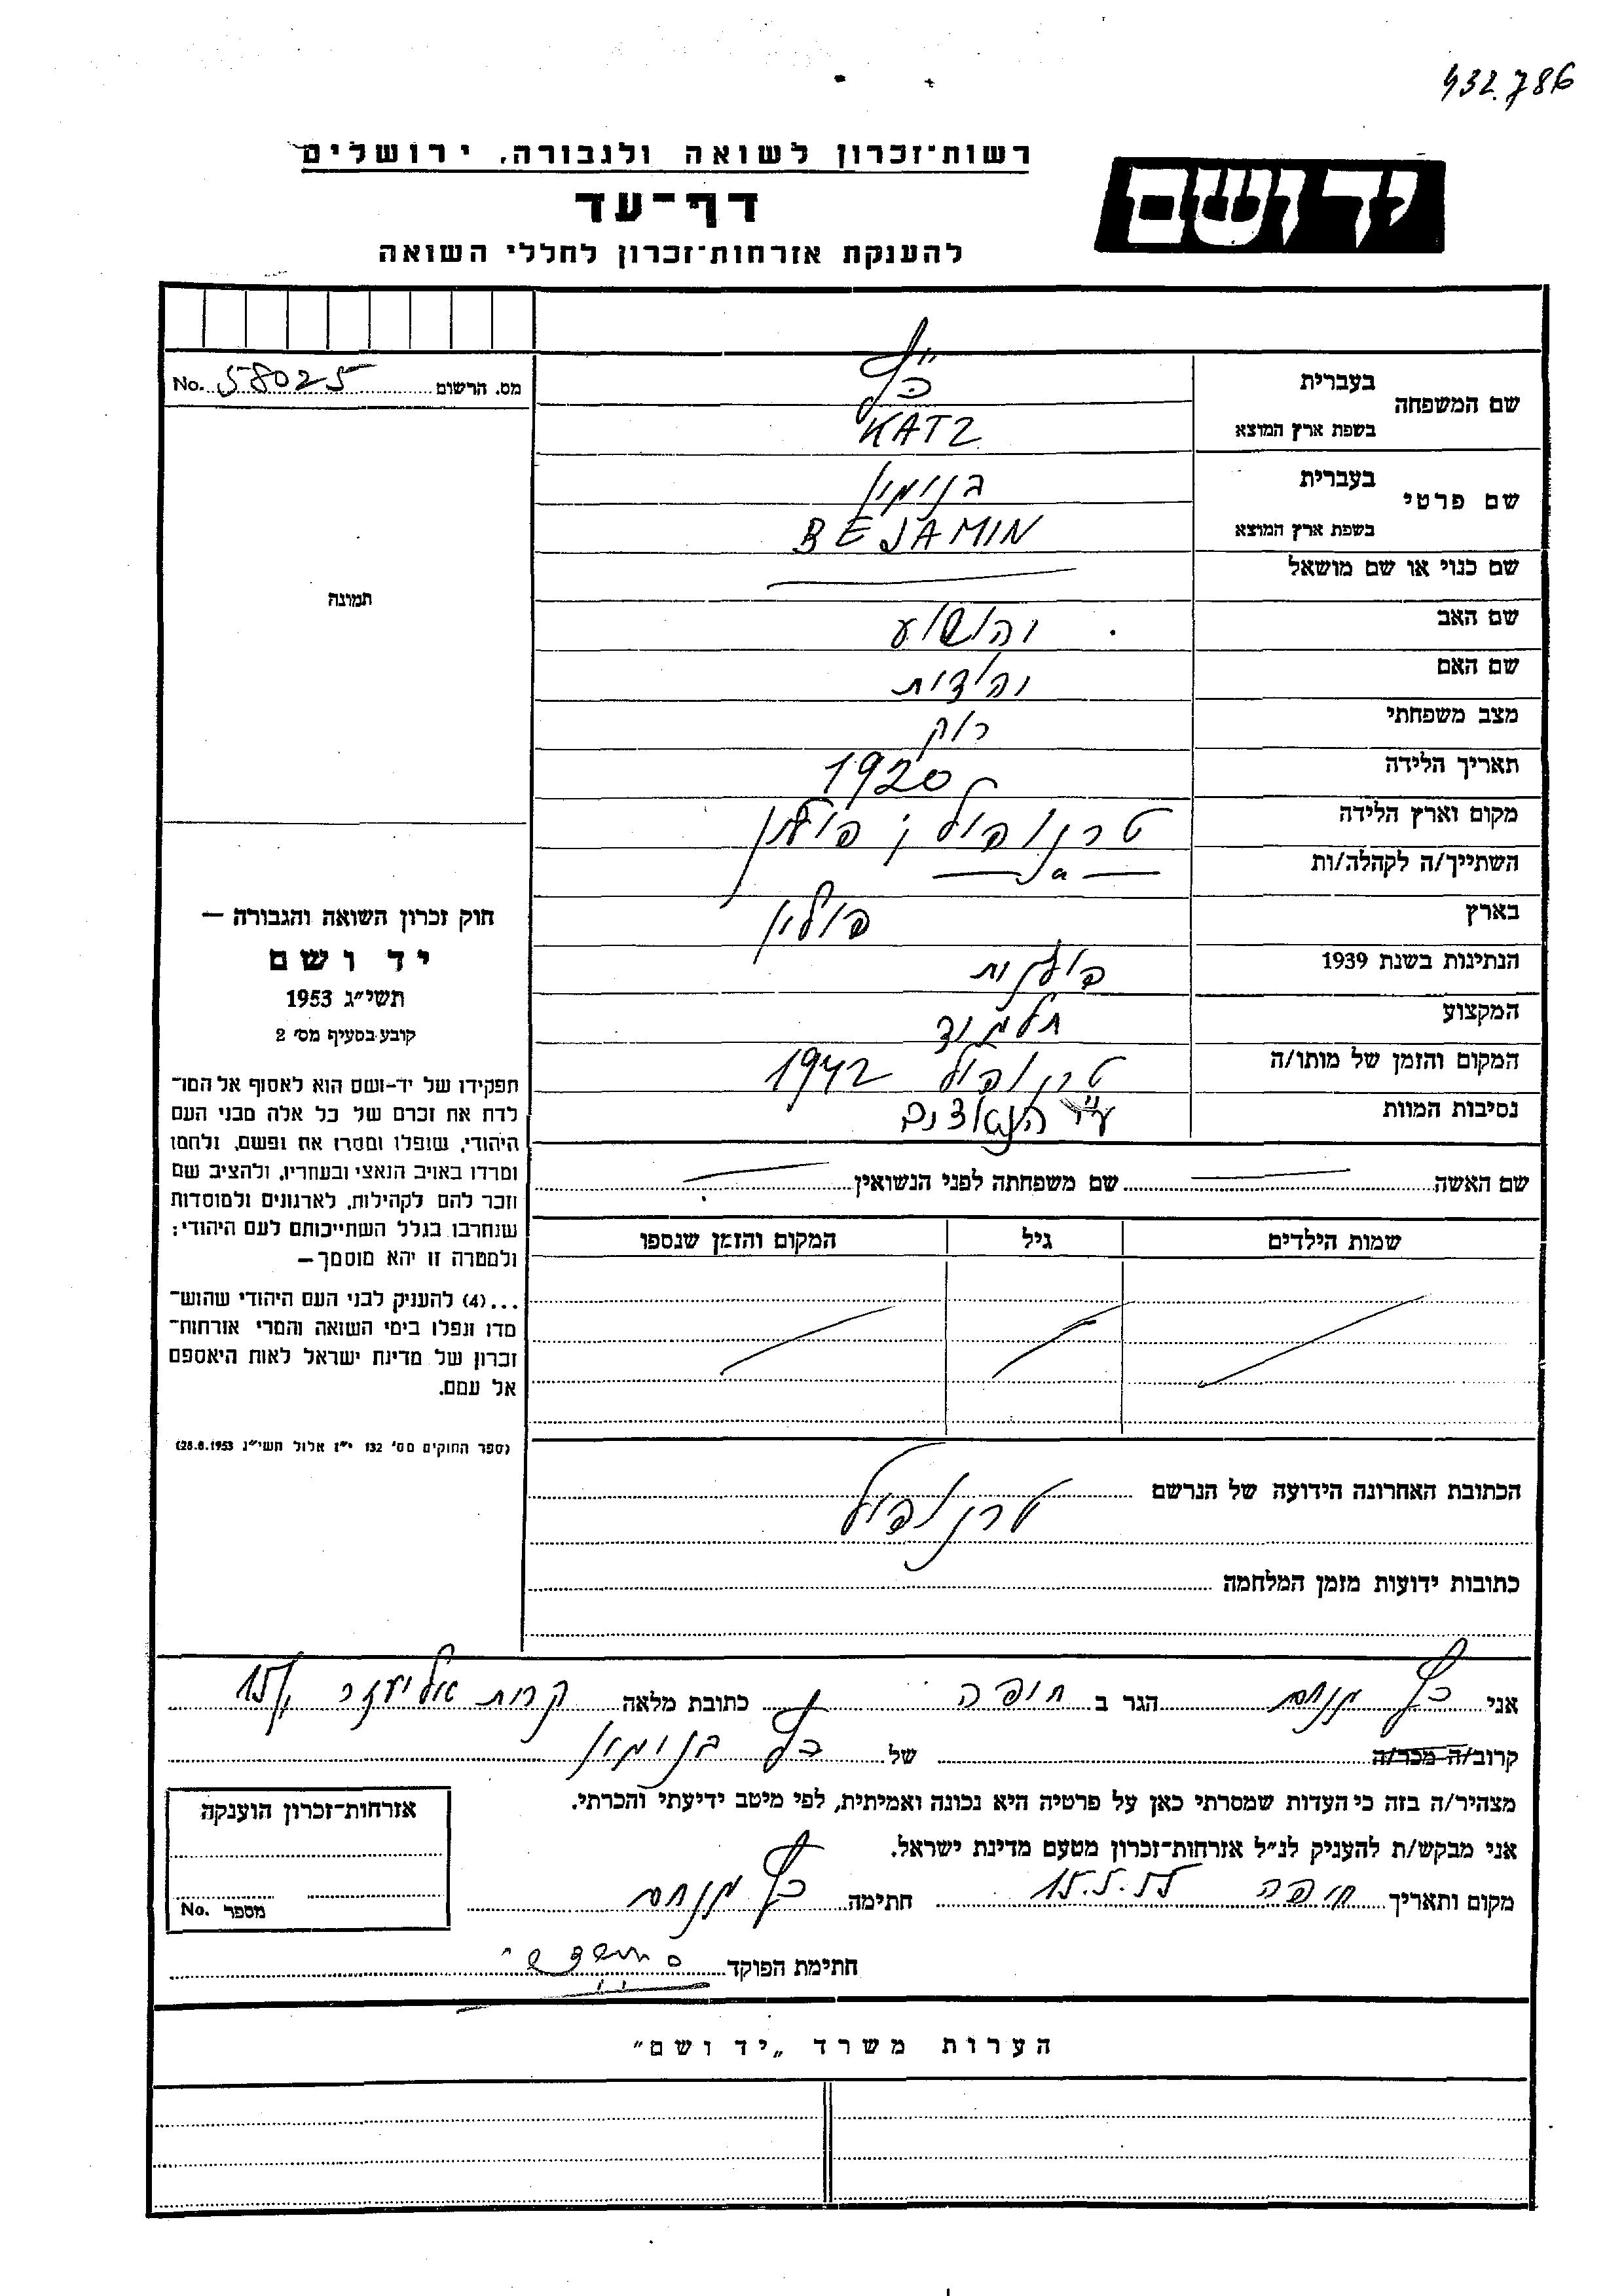 432.786
רשות־זכרון לשואה ולגבורה, ירושלים
יד ושם
דף־עד
להענקת אזרחות־זכרון לחללי השואה
מס. הרשום 58025 No.
שם המשפחה בעברית כ"ץ
בשפת ארץ המוצא KATZ
שם פרטי בעברית בנימין
בשפת ארץ המוצא BEJAMIN
שם כנוי או שם מושאל
תמונה
שם האב יהושע
שם האם יהודית
מצב משפחתי רוק
תאריך הלידה 1920
מקום וארץ הלידה טרנופול ; פולין
השתייך/ה לקהלה/ות
בארץ פולין
הנתינות בשנת 1939 פולנית
המקצוע תלמיד
המקום והזמן של מותו/ה טרנופול 1942
נסיבות המוות ע"י הנאצים
חוק זכרון השואה והגבורה —
יד ושם
תשי״ג 1953
קובע בסעיף מס׳ 2
תפקידו של יד-ושם הוא לאסוף אל המו־
לדת את זכרם של כל אלה מבני העם
היהודי, שנפלו ומסרו את נפשם, נלחמו
ומרדו באויב הנאצי ובעוזריו, ולהציב שם
וזכר להם לקהילות, לארגונים ולמוסדות
שנחרבו בגלל השתייכותם לעם היהודי;
ולמטרה זו יהא מוסמך—
...(4) להעניק לבני העם היהודי שהוש־
מדו ונפלו בימי השואה והמרי אזרחות־
זכרון של מדינת ישראל לאות היאספם
אל עמם.
(ספר החוקים מס׳ 132 י״ז אלול תשי״ג 28.8.1953)
שם האשה שם משפחתה לפני הנשואין
שמות הילדים גיל המקום והזמן שנספו
הכתובת האחרונה הידועה של הנרשם
טרנופול
כתובות ידועות מזמן המלחמה
אני כץ מנחם הגר ב חיפה כתובת מלאה קרית אליעזר 15/
קרוב/ה מכר/ה של כץ בנימין
מצהיר/ה בזה כי העדות שמסרתי כאן על פרטיה היא נכונה ואמיתית, לפי מיטב ידיעתי והכרתי.
אני מבקש/ת להעניק לנ״ל אזרחות־זכרון מטעם מדינת ישראל.
מקום ותאריך חיפה 15.5.55 חתימה כץ מנחם
חתימת הפוקד
אזרחות־זכרון הוענקה
מספר No.
הערות משרד „יד ושם״